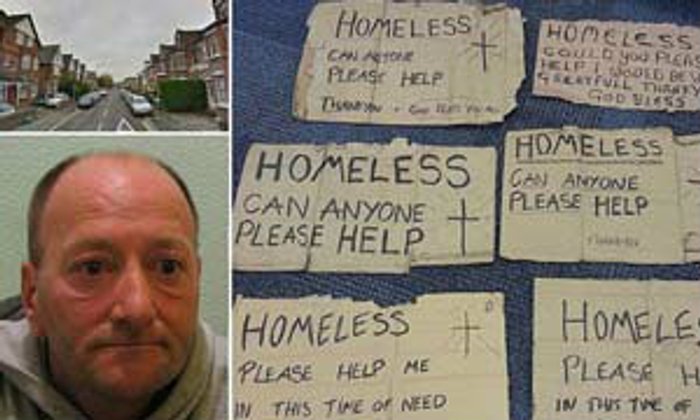 HOMELESS
CAN ANYONE
PLEASE HELP
THANKYOU + GOD BLESS
HOMELESS
COULD YOU PLEASE
HELP I WOULD BE
GREATFULL THANK
GOD BLESS
HOMELESS
CAN ANYONE
PLEASE HELP
HOMELESS
CAN ANYONE
PLEASE HELP
THANKYOU
HOMELESS
PLEASE HELP ME
IN THIS TIME OF NEED
HOMELES
PLEASE H
IN THIS TIME OF